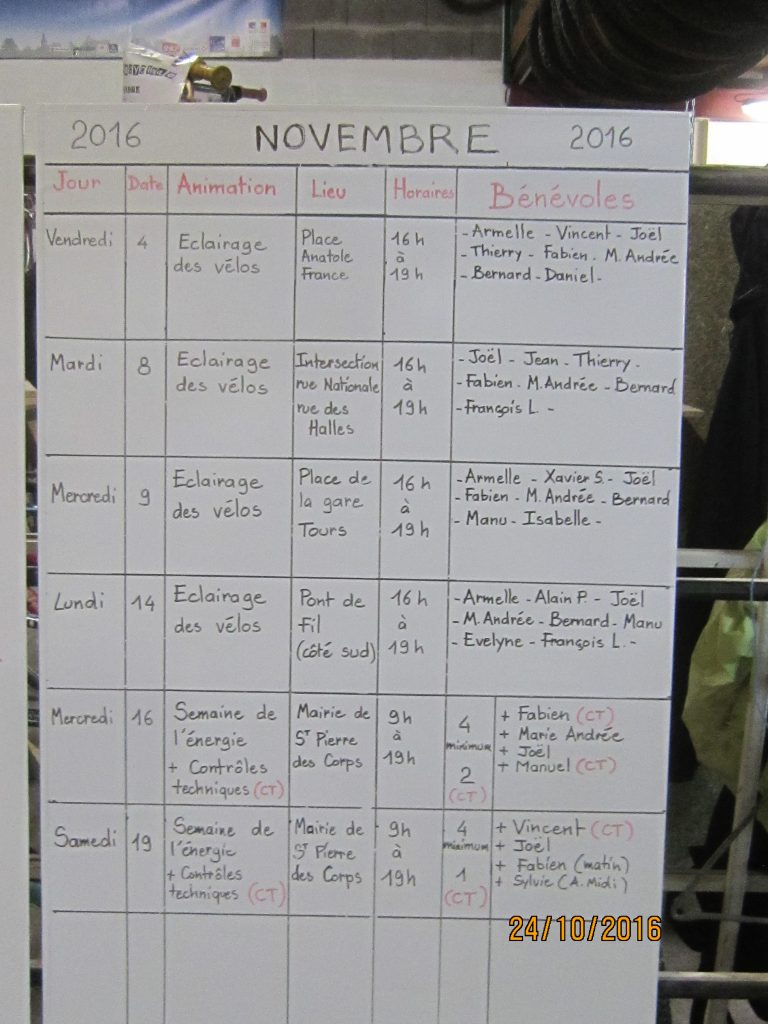 2016 NOVEMBRE 2016
Jour Date Animation Lieu Horaires Bénévoles
Vendredi 4 Eclairage Place 16h - Armelle - Vincent - Joël
des vélos Anatole à - Thierry - Fabien - M. Andrée
France 19h - Bernard - Daniel -
Mardi 8 Eclairage Intersection 16h - Joël - Jean - Thierry -
des vélos rue Nationale à - Fabien - M. Andrée - Bernard
rue des 19h - François L. -
Halles
Mercredi 9 Eclairage Place de 16h - Armelle - Xavier S. - Joël
des vélos la gare à - Fabien - M. Andrée - Bernard
Tours 19h - Manu - Isabelle -
Lundi 14 Eclairage Pont de 16h - Armelle - Alain P. - Joël
des vélos Fil à - M. Andrée - Bernard - Manu
(côté sud) 19h - Evelyne - François L. -
Mercredi 16 Semaine de Mairie de 9h 4 + Fabien (CT)
l'énergie ST Pierre à minimum + Marie Andrée
+ Contrôles des Corps 19h 2 + Joël
techniques (CT) (CT) + Manuel (CT)
Samedi 19 Semaine de Mairie de 9h 4 + Vincent (CT)
l'énergie ST Pierre à minimum + Joël
+ Contrôles des Corps 19h 1 + Fabien (matin)
techniques (CT) (CT) + Sylvie (A. Midi)
24/10/2016